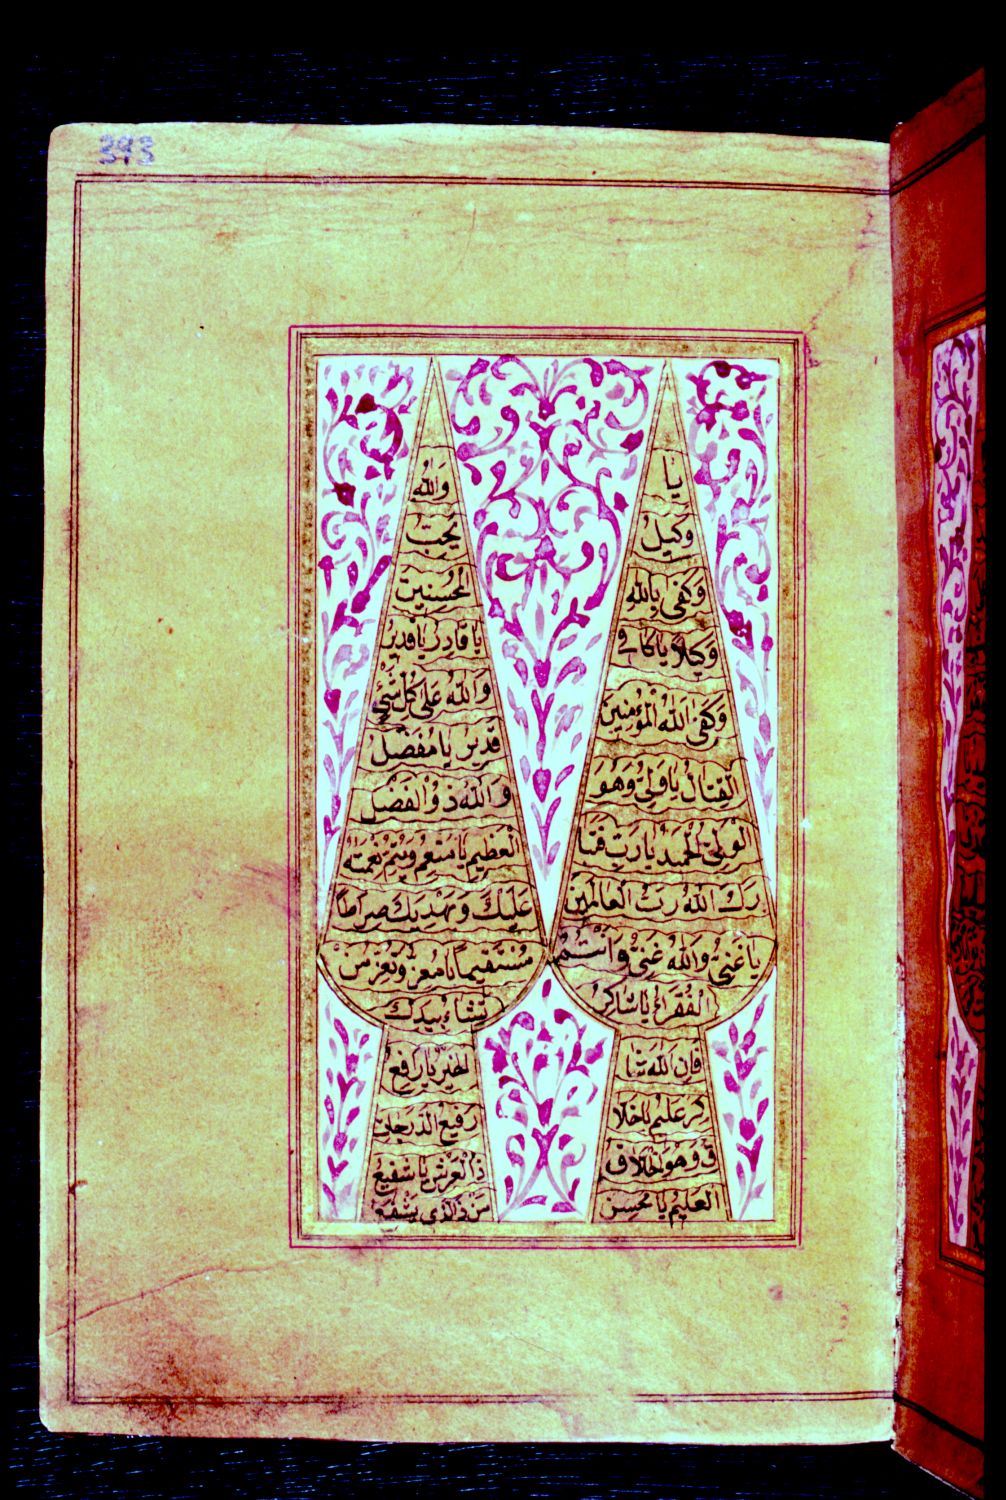 393
يا
وَكيلُ
وَكَفى بِاللهِ
وَكيلاً يا كافي
وَكَفَى اللهُ الْمُؤْمِنينَ
الْقِتالَ يا وَلِيُّ وَهُوَ
الْوَلِيُّ الْحَميدُ يا رَبِّ فَتَبا
رَكَ اللهُ رَبُّ الْعالَمينَ
يا غَنِيُّ وَاللهُ غَنِيٌّ وَاَنْتُمُ
الْفُقَراءُ يا شاكِرُ
فَاِنَّ اللهَ شا
كِرٌ عَليمٌ يا خَلا
قُ وَهُوَ الْخَلاقُ
الْعَليمُ يا مُحْسِنُ
وَاللهُ
يُحِبُّ
الْمُحْسِنينَ
يا قادِرُ يا قَديرُ
وَاللهُ عَلى كُلِّ شَيْءٍ
قَديرٌ يا مُفَضِّلُ
وَاللهُ ذُو الْفَضْلِ
الْعَظيمِ يا مُنْعِمُ وَيُتِمُّ نِعْمَتَهُ
عَلَيْكَ وَيَهْدِيَكَ صِراطاً
مُسْتَقيماً يا مُعِزُّ وَتُعِزُّ مَنْ
تَشاءُ بِيَدِكَ
الْخَيْرُ يا رَافِعُ
رَفيعُ الدَّرَجاتِ
ذُو الْعَرْشِ يا شَفيعُ
مَنْ ذَا الَّذي يَشْفَعُ